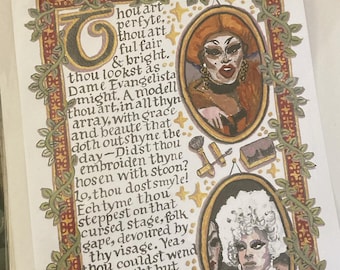 Thou art
perfyte,
thou art
ful fair
& bright,
thou lookst as
Dame Evangelista
might. A modell
thou art, in all thyn
array, with grace
and beaute that
doth outshyne the
day–Didst thou
embroiden thyne
hosen with stoon?
Lo, thou dost smyle!
Ech tyme thou
steppest on that
cursed stage, folk
gape, devoured by
thy visage. Yea,
thou couldst wend
but